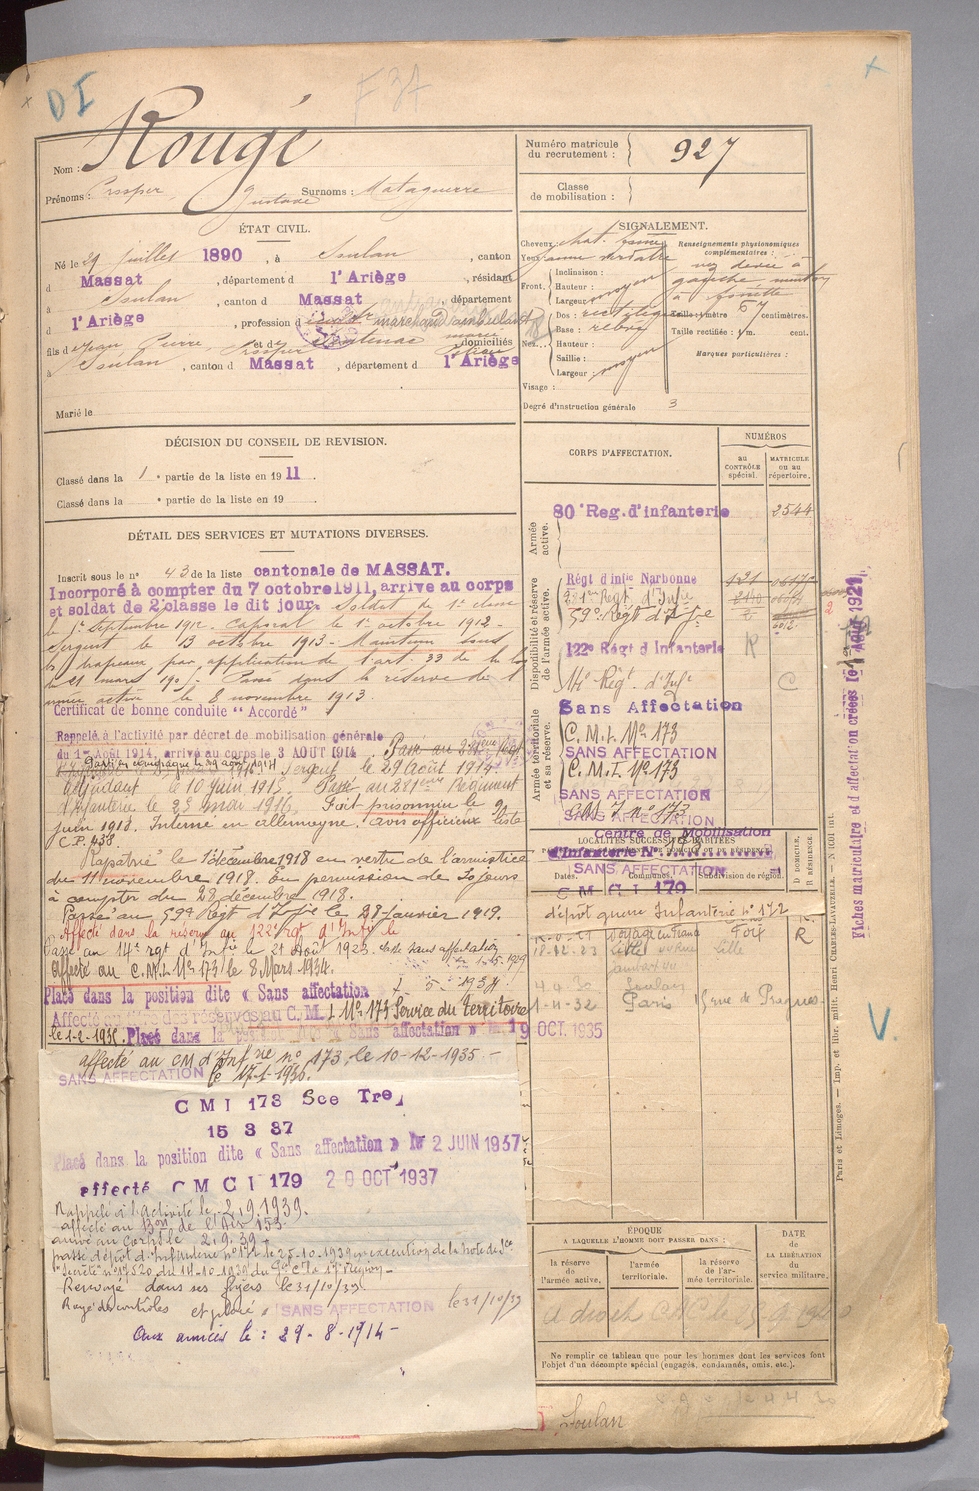 D I
F 34
Nom : Rougé
Prénoms : Prosper, Gustave Surnoms : Mataguerre
Numéro matricule du recrutement : 927
Classe de mobilisation :
ÉTAT CIVIL.
Né le 29 juillet 1890, à Soulan, canton
d Massat, département d l'Ariège, résidant
à Soulan, canton d Massat, département
d l'Ariège, profession d marchand ambulant
fils d Jean Pierre, Prosper et d domiciliés
à Soulan, canton d Massat, département d l'Ariège
Marié le
SIGNALEMENT.
Cheveux chat. foncé
Yeux
Front. Inclinaison :
Hauteur :
Largeur moyen
Nez. Dos : rectiligne
Base : relevé
Hauteur :
Saillie :
Largeur : moyen
Visage :
Degré d'instruction générale 3
Renseignements physionomiques complémentaires :
nez dévié à
gauche menton
à fossette
Taille : 1 mètre 67 centimètres.
Taille rectifiée : 1 m. cent.
Marques particulières :
DÉCISION DU CONSEIL DE REVISION.
Classé dans la 1e partie de la liste en 1911.
Classé dans la e partie de la liste en 19 .
DÉTAIL DES SERVICES ET MUTATIONS DIVERSES.
Inscrit sous le n° 43 de la liste cantonale de MASSAT.
Incorporé à compter du 7 octobre 1911, arrive au corps
et soldat de 2e classe le dit jour. Soldat de 1e classe
le 1er Septembre 1912. Caporal le 1er octobre 1912.
Sergent le 13 octobre 1913. Maintenu sous
les drapeaux par application de l'art. 33 de la loi
du 21 mars 1905. Passé dans la réserve de l'
armée active le 8 novembre 1913.
Certificat de bonne conduite "Accordé"
Rappelé à l'activité par décret de mobilisation générale
du 1er Août 1914, arrivé au corps le 3 AOUT 1914. Passé au
Parti en campagne le 29 août 1914
Sergent le 29 Août 1914.
Adjudant le 10 juin 1915. Passé au 281ème Régiment
d'Infanterie le 23 mai 1916. Fait prisonnier le 9
juin 1918. Interné en Allemagne. Avis officieux liste
C.P. 438.
Rapatrié le 1 décembre 1918 en vertu de l'armistice
du 11 novembre 1918. En permission de 30 jours
à compter du 28 décembre 1918.
Passé au 59e Régt d'Infie le 28 janvier 1919.
Affecté dans la réserve au 122e rgt d'Infie le
Passé au 14e rgt d'Infie le 21 Août 1923.
Affecté au C.M.I. No 173 le 8 Mars 1934.
Placé dans la position dite « Sans affectation
Affecté au titre des réserves au C.M.I. No 173 Service du Territoire
le 1-2-1935. Placé dans la position dite « Sans affectation » le 19 OCT 1935
affecté au CM d'Infrie n° 173 le 10-12-1935.
SANS AFFECTATION le 17-1-1936.
C M I 173 Sce Tre
15 3 37
Placé dans la position dite « Sans affectation » le 2 JUIN 1937
affecté C M C I 179 20 OCT 1937
Rappelé à l'activité le 2.9.1939.
affecté au Bon de l'Air 153.
arrivé au corps le 2.9.39.
passé dépôt d'Infanterie n° 172 le 25-10-1939 en execution de la note de Sce
Secrète n° 17520 du 14-10-1939 du Gal Ct la 17e Région
Renvoyé dans ses foyers le 31/10/39
Rayé des contrôles et placé « SANS AFFECTATION le 31/10/39
Aux armées le : 29-8-1914
CORPS D'AFFECTATION.
NUMÉROS
au CONTRÔLE spécial.
MATRICULE ou au répertoire.
Armée active.
80e Reg. d'infanterie 2544
Disponibilité et réserve de l'armée active.
Régt d'infie Narbonne
281e Régt d'Infie
59e Régt d'Infie
122e Régt d'Infanterie R
14e Régt. d'Infie C
Armée territoriale et sa réserve.
Sans Affectation
C.M.I. No 173
SANS AFFECTATION
C.M.I. No 173
SANS AFFECTATION
C.M.I. n° 173
SANS AFFECTATION
Centre de Mobilisation
d'Infanterie N°
LOCALITÉS SUCCESSIVES HABITÉES
Dates. Communes. Subdivision de région.
D DOMICILE, R RÉSIDENCE.
SANS AFFECTATION
C M C I 179
dépôt guerre Infanterie n° 172
Voyage en France Foix R
18-12-23 Lille Lille
4 9 30 Soulan
1-11-32 Paris
ÉPOQUE
A LAQUELLE L'HOMME DOIT PASSER DANS :
la réserve de l'armée active,
l'armée territoriale.
la réserve de l'armée territoriale.
DATE de LA LIBÉRATION du service militaire.
Ne remplir ce tableau que pour les hommes dont les services font
l'objet d'un décompte spécial (engagés, condamnés, omis, etc.).
Soulan
Fiches matriculaire et d'affectation créées le 1er AOUT 1921
Paris et Limoges. — Imp. et libr. milit. Henri CHARLES-LAVAUZELLE.
V.